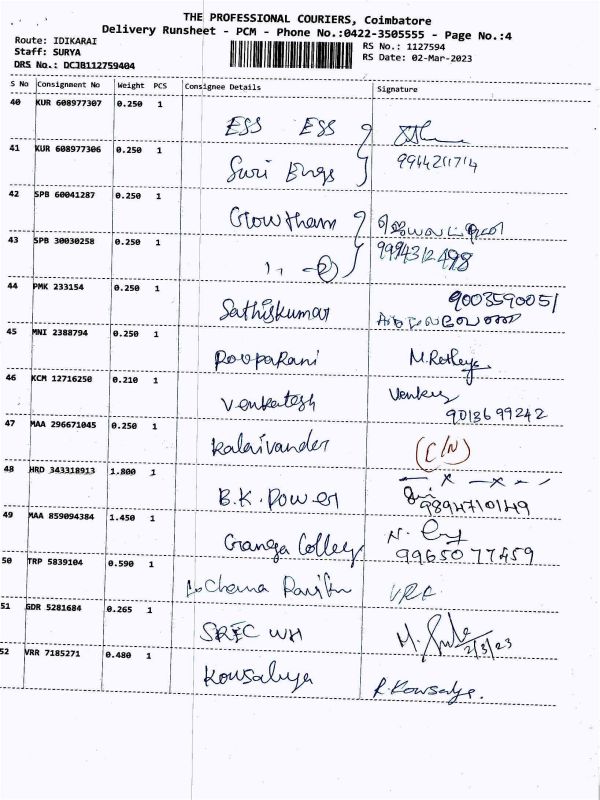 THE PROFESSIONAL COURIERS, Coimbatore
Delivery Runsheet - PCM - Phone No.:0422-3505555 - Page No.:4
Route: IDIKARAI
Staff: SURYA
DRS No.: DCJB112759404
RS No.: 1127594
RS Date: 02-Mar-2023
S No Consignment No Weight PCS Consignee Details Signature
40 KUR 608977307 0.250 1 ESS ESS
41 KUR 608977306 0.250 1 Suri Engs
42 SPB 60041287 0.250 1 Growtham
43 SPB 30030258 0.250 1 9994312498
44 PMK 233154 0.250 1 Sathiskumar 9003590051
45 MNI 2388794 0.250 1 Rooparani
46 KCM 12716250 0.210 1 Venkatesh Venkey
9013699242
47 MAA 296671045 0.250 1 Kalaivander (C/N)
48 HRD 343318913 1.800 1 B.K. Power 9894710149
49 MAA 859094384 1.450 1 Ganga Colley
9965077459
50 TRP 5839104 0.590 1
51 GDR 5281684 0.265 1 SREC WH 2/3/23
52 VRR 7185271 0.480 1 Kowsalya R. Kowsalya.